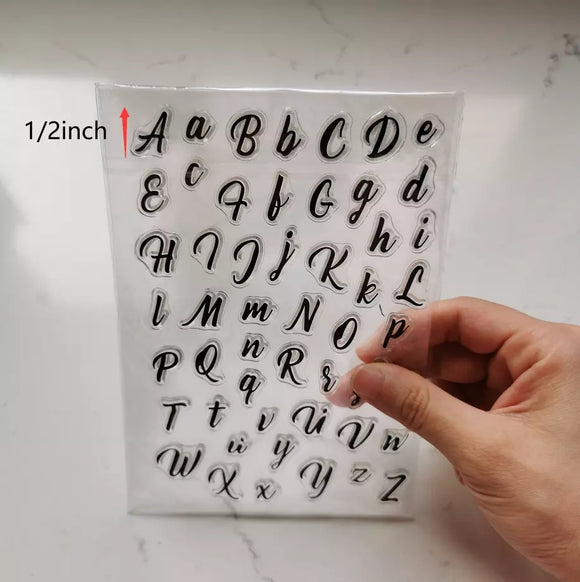 1/2inch
A a B b C D e
E c F f G g d
H I J j K h i
l M m N O k L
P Q n R r p
q s
T t v U V w
W u y Y z Z
X x